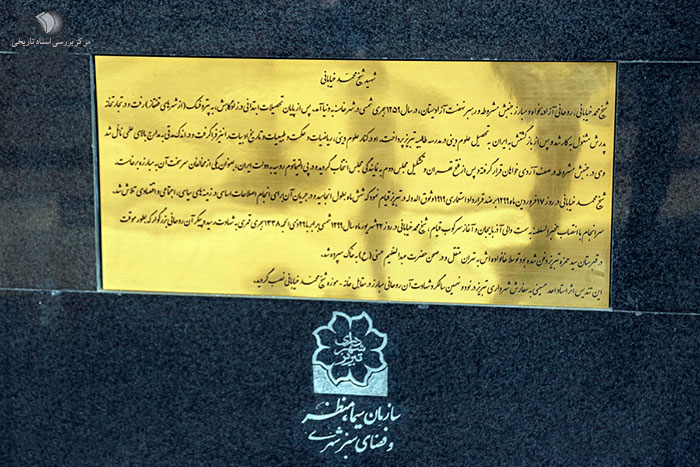 مرکز بررسی اسناد تاریخی
شهید شیخ محمد خیابانی
شیخ محمد خیابانی، روحانی آزادیخواه و مبارز جنبش مشروطه و رهبر نهضت آزادیستان، در سال ۱۲۵۹ هجری شمسی در شهر خامنه به دنیا آمد. پس از پایان تحصیلات ابتدائی در زادگاهش، به پتروفسک (از شهرهای قفقاز) رفت و در تجارتخانه
پدرش مشغول به کار شد و پس از بازگشتش به ایران به تحصیل علوم دینی در مدرسه طالبیه تبریز پرداخت. او در کنار علوم دینی، ریاضیات و حکمت و طبیعیات و تاریخ و ادبیات را نیز فرا گرفت و در اندک مدتی به مدارج بالای علمی نائل شد
وی در جنبش مشروطه در صف آزادی خواهان قرار گرفته و پس از فتح تهران و تشکیل مجلس دوم به نمایندگی مجلس انتخاب گردید و در پی التیماتوم روسیه به دولت ایران، بعنوان یکی از مخالفان سرسخت آن به مبارزه برخاست.
شیخ محمد خیابانی در روز ۱۷ فروردین ماه ۱۲۹۹ بر ضد قرارداد استعماری ۱۹۱۹ وثوق الدوله در تبریز قیام نمود که شش ماه بطول انجامید و در جریان آن برای انجام اصلاحات اساسی در زمینه‌های سیاسی، اجتماعی و اقتصادی تلاش شد.
سرانجام با انتصاب مخبرالسلطنه به سمت والی آذربایجان و آغاز سرکوب قیام، شیخ محمد خیابانی در روز ۲۲ شهریور ماه سال ۱۲۹۹ شمسی برابر با ۲۹ ذی الحجه ۱۳۳۸ هجری قمری به شهادت رسید و پیکر آن روحانی بزرگوار که بطور موقت
در قبرستان سید حمزه تبریز دفن شده بود توسط خانواده‌اش به تهران منتقل و در صحن حضرت عبدالعظیم حسنی (ع) به خاک سپرده شد.
این تندیس اثر استاد احد حسینی به سفارش شهرداری تبریز در نود و نهمین سالگرد شهادت آن روحانی مبارز در مقابل خانه - موزه شیخ محمد خیابانی نصب گردید.
شهرداری
تبریز
سازمان سیما، منظر
و فضای سبز شهری